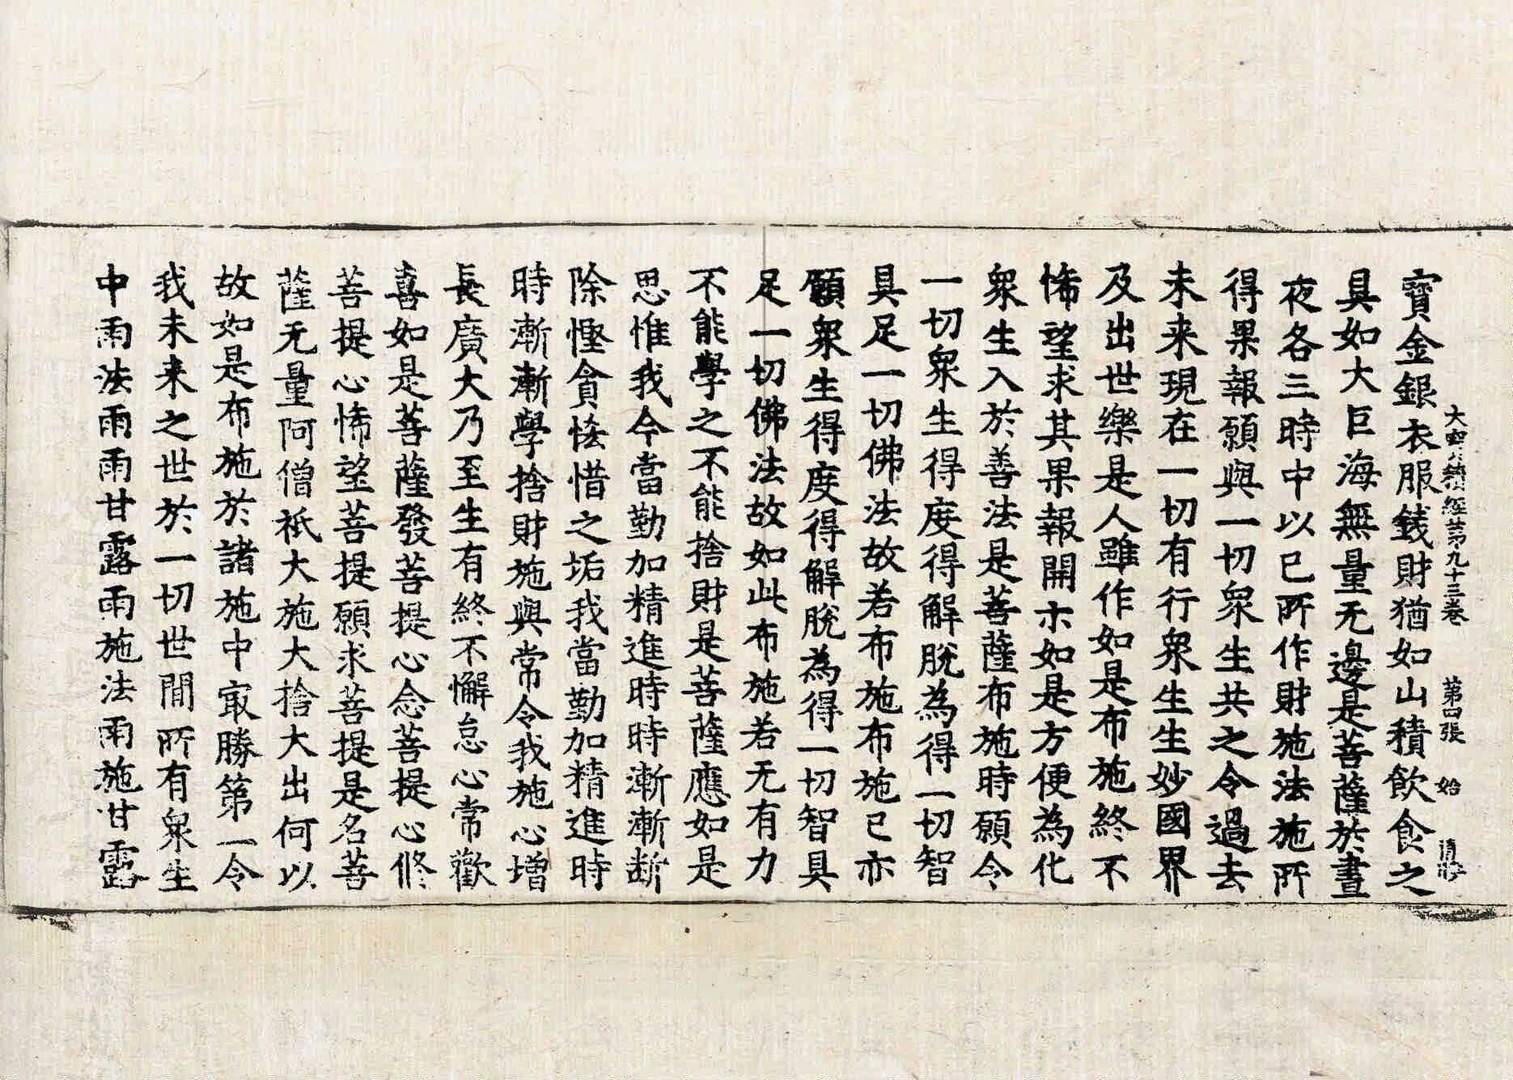 大寶積經第九十三卷 第四張 始
寶金銀衣服錢財猶如山積飲食之
具如大巨海無量无邊是菩薩於晝
夜各三時中以己所作財施法施所
得果報願與一切衆生共之令過去
未来現在一切有行衆生生妙國界
及出世樂是人雖作如是布施終不
悕望求其果報開示如是方便為化
衆生入於善法是菩薩布施時願令
一切衆生得度得解脫為得一切智
具足一切佛法故若布施布施已亦
願衆生得度得解脫為得一切智具
足一切佛法故如此布施若无有力
不能學之不能捨財是菩薩應如是
思惟我今當勤加精進時時漸漸断
除慳貪悋惜之垢我當勤加精進時
時漸漸學捨財施與常令我施心增
長廣大乃至生有終不懈怠心常歡
喜如是菩薩發菩提心念菩提心修
菩提心悕望菩提願求菩提是名菩
薩无量阿僧祇大施大捨大出何以
故如是布施於諸施中㝡勝第一令
我未来之世於一切世間所有衆生
中雨法雨雨甘露雨施法雨施甘露